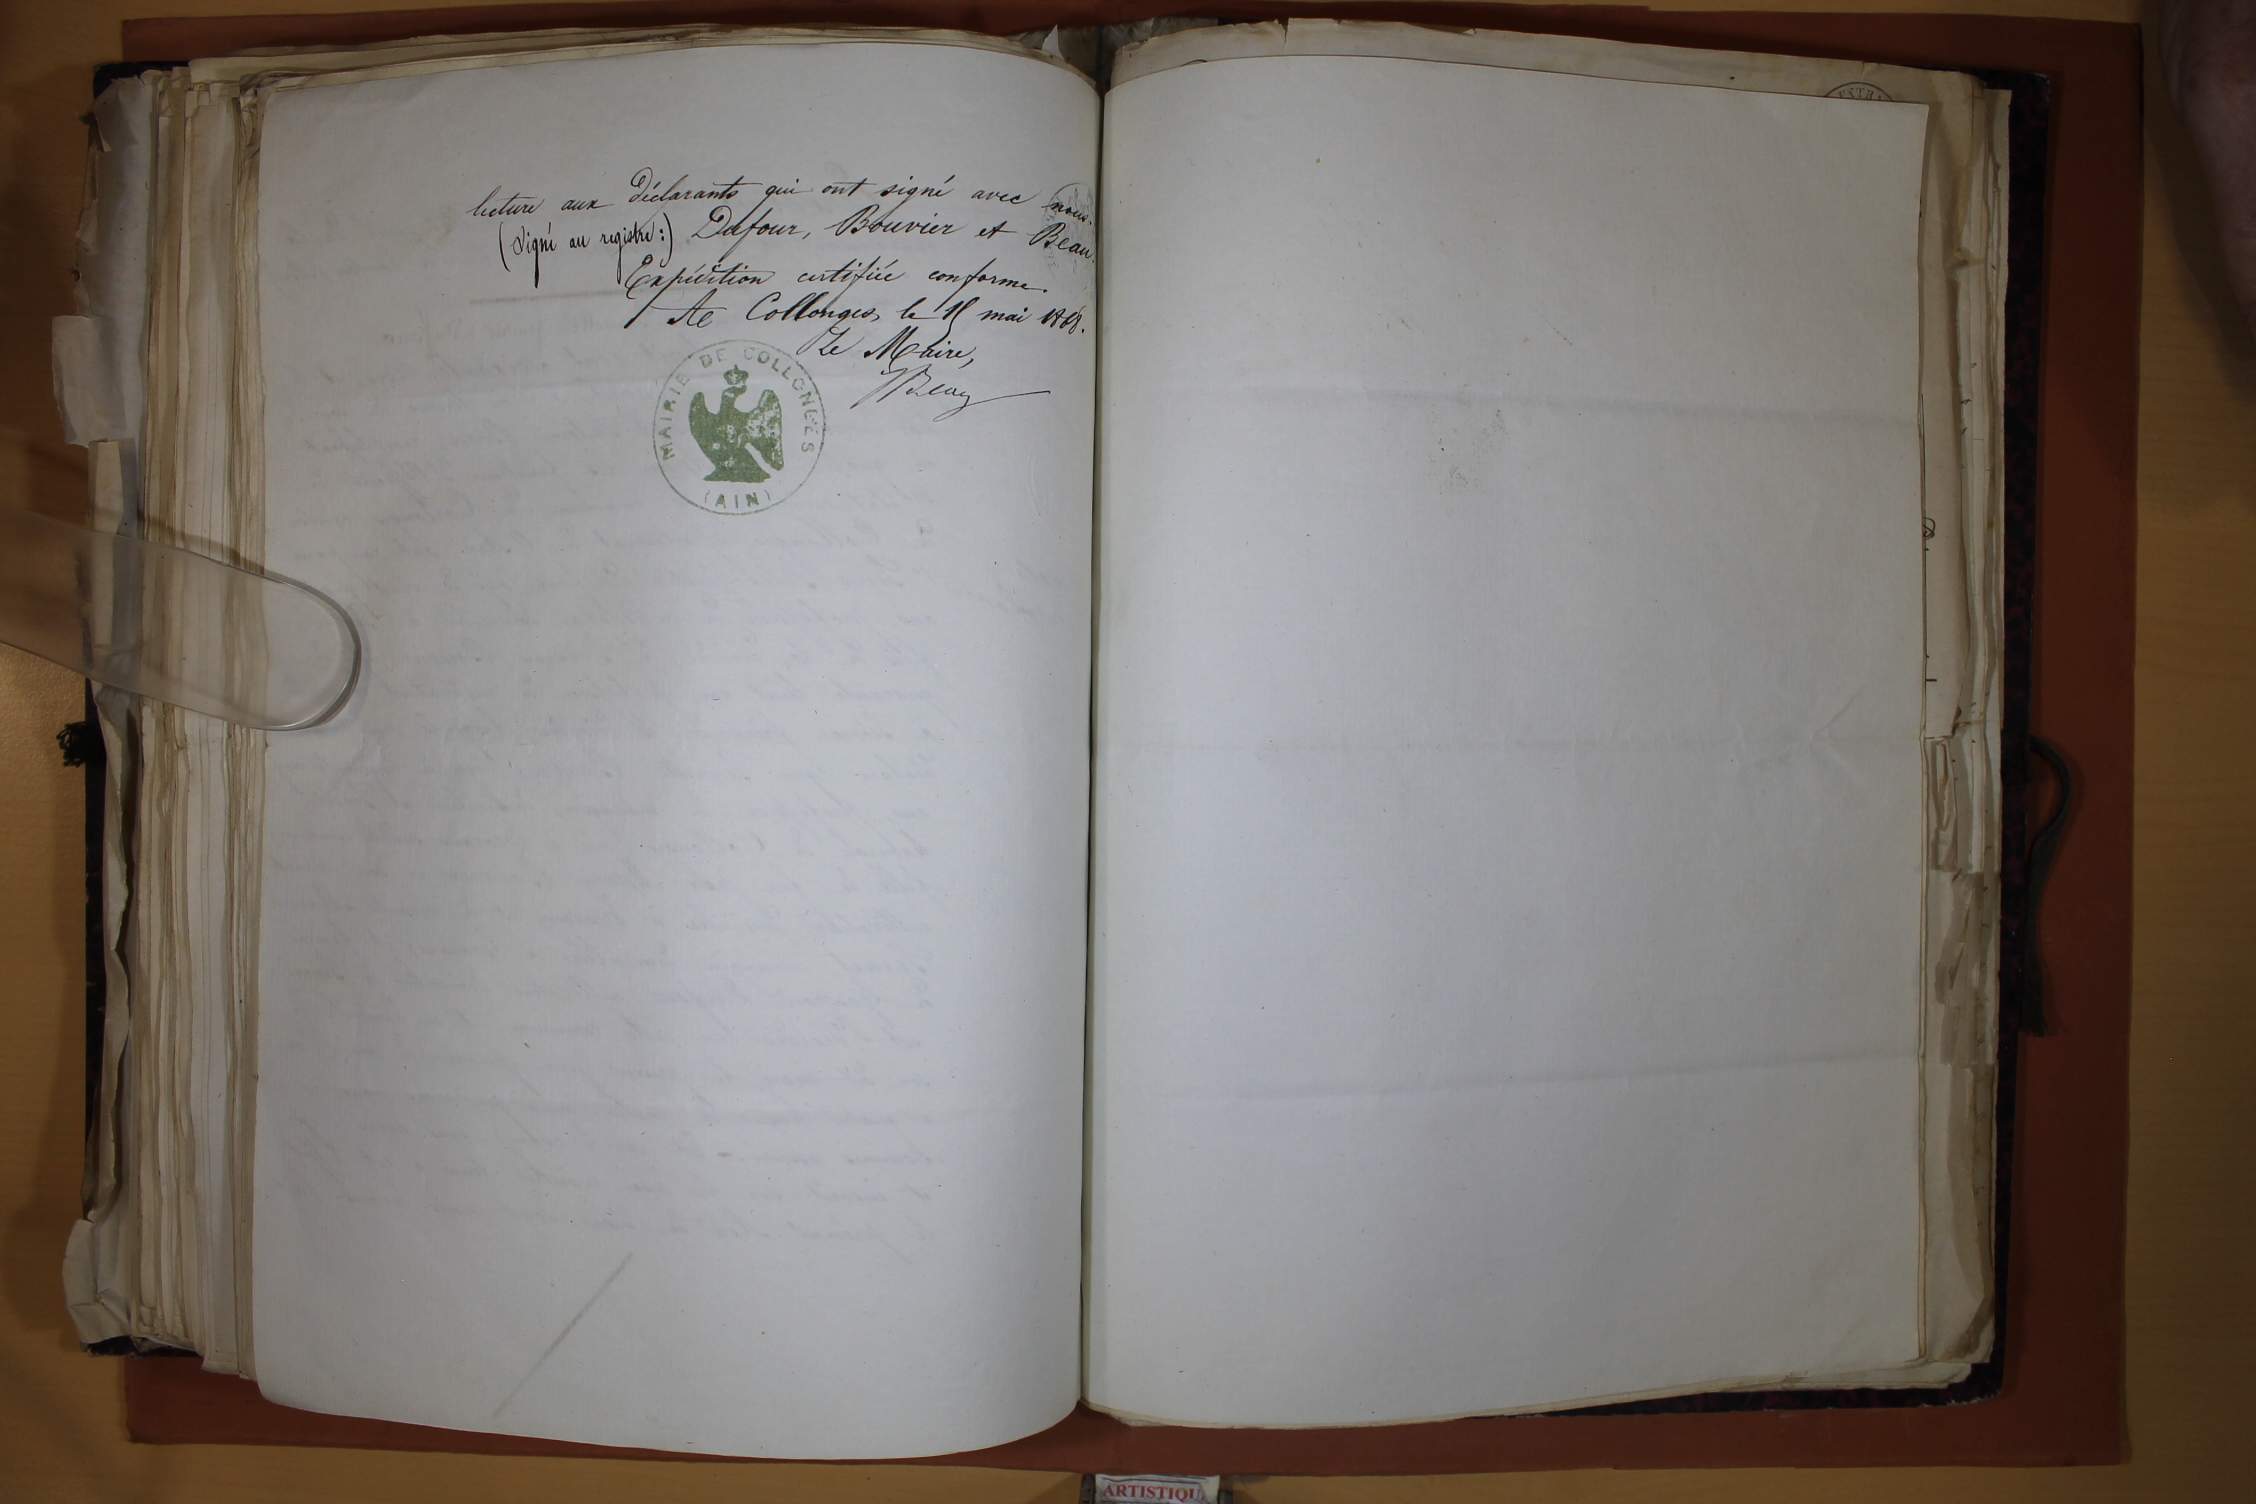 lecture aux déclarants qui ont signé avec nous.
(Signé au registre:) Dufour, Bouvier et Beau.
Expédition certifiée conforme.
Collonges, le mai
Le Maire,
Beau
MAIRIE DE COLLONGES
(AIN)
EXTR
ARTISTIQU